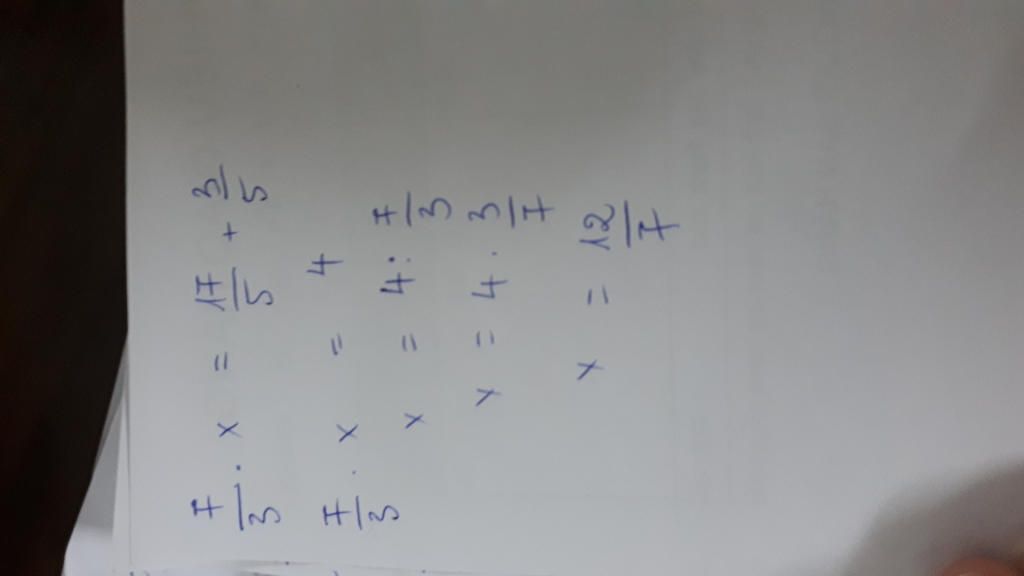 7/3 . x = 17/5 + 3/5
7/3 . x = 4
x = 4 : 7/3
x = 4 . 3/7
x = 12/7